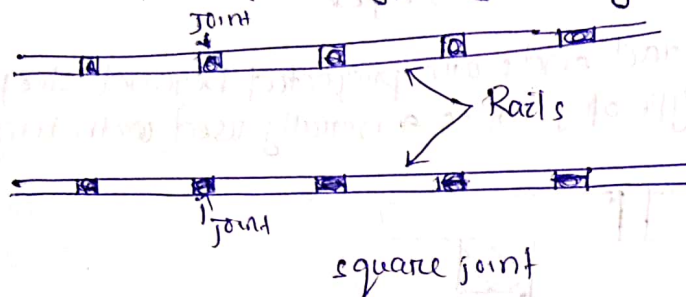 Joint
Rails
Joint
square joint